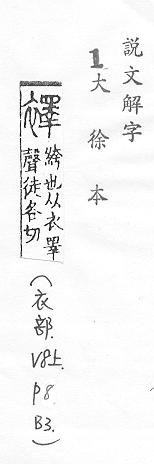 説文解字
1大徐本
襗
絝也从衣睪
聲徒各切
(衣部. V8上. P8. B3.)